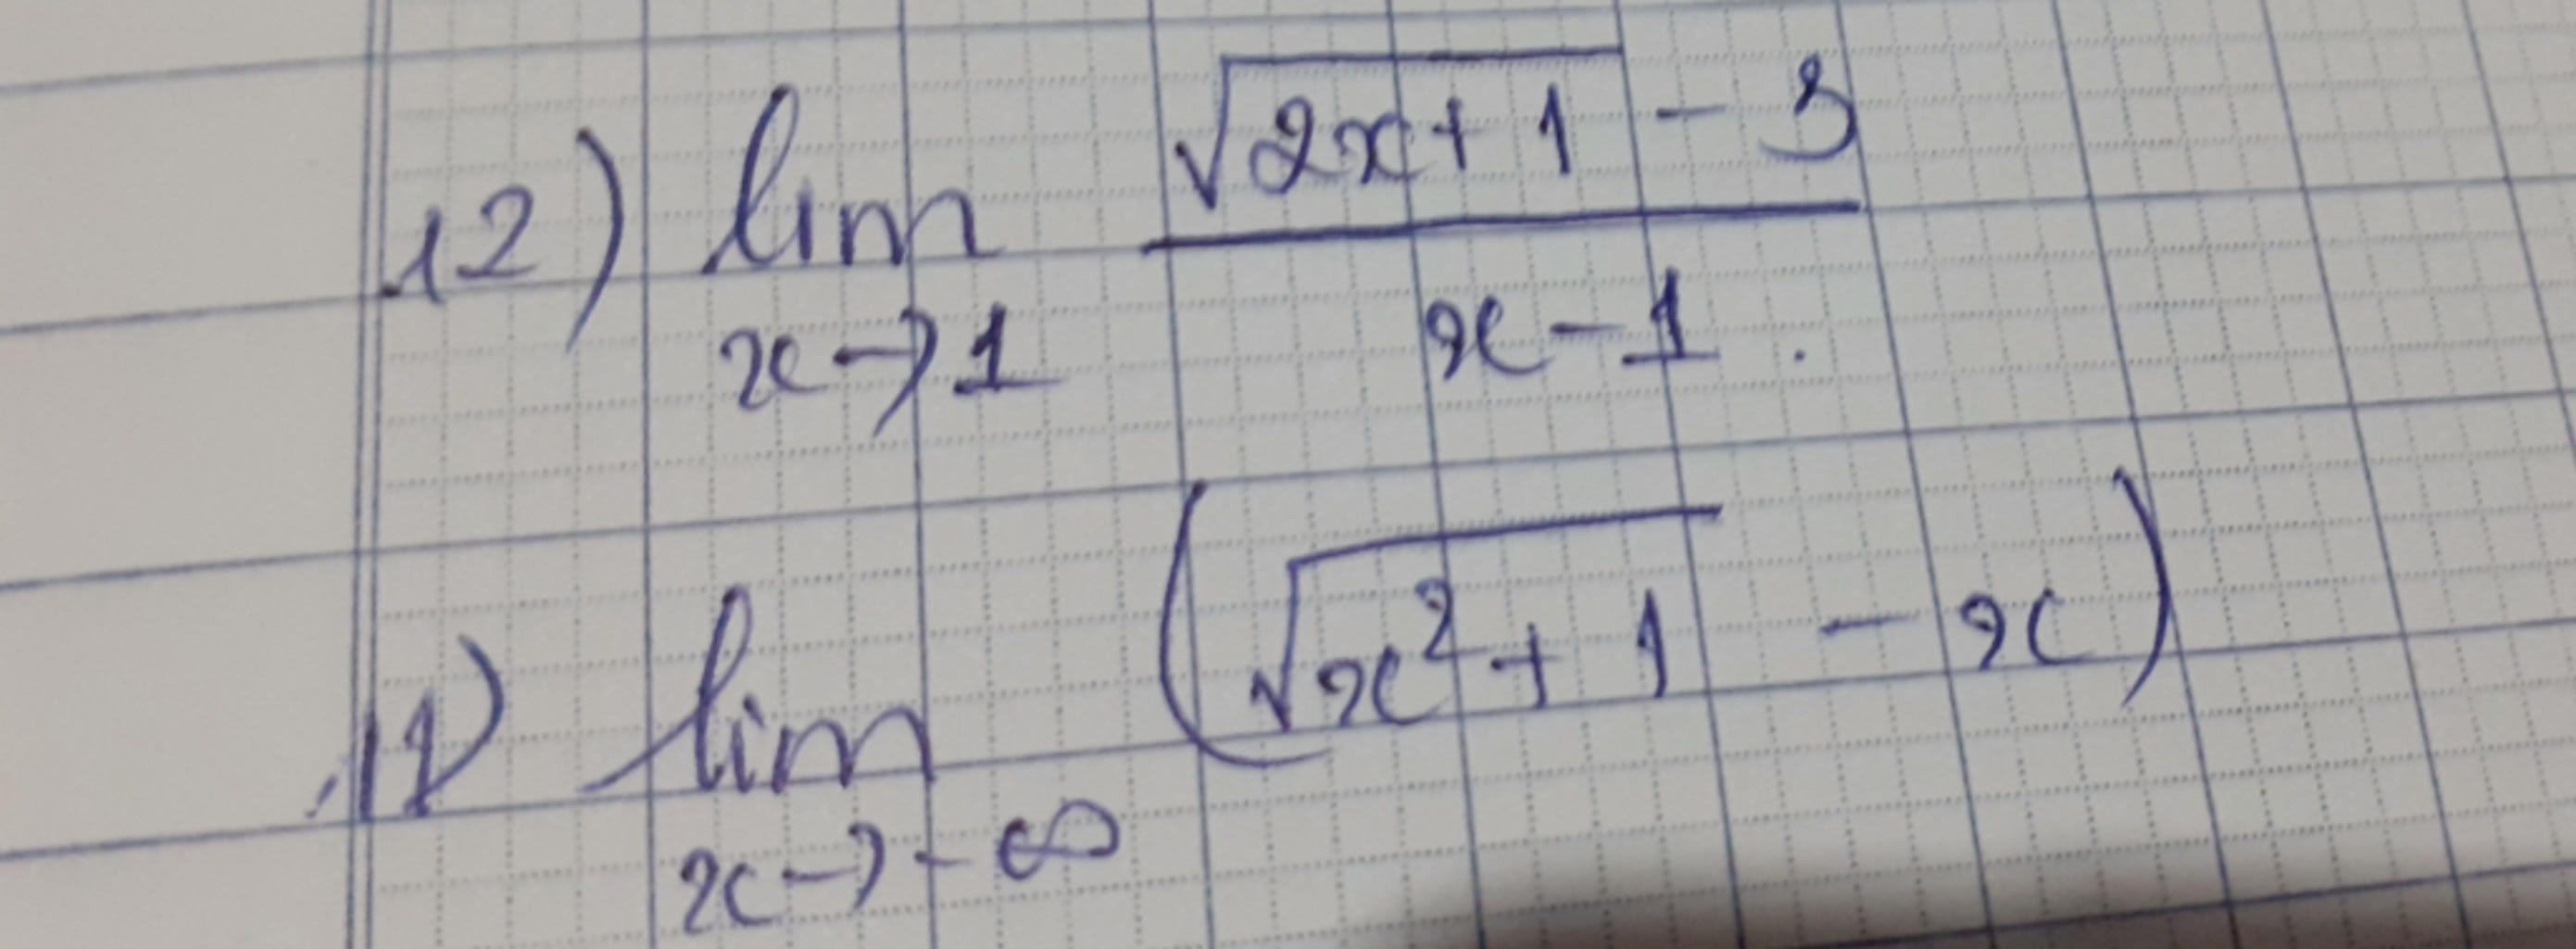 12) lim x→1 (√(2x+1) - 3)/(x-1).
11) lim x→-∞ (√(x²+1) - x)